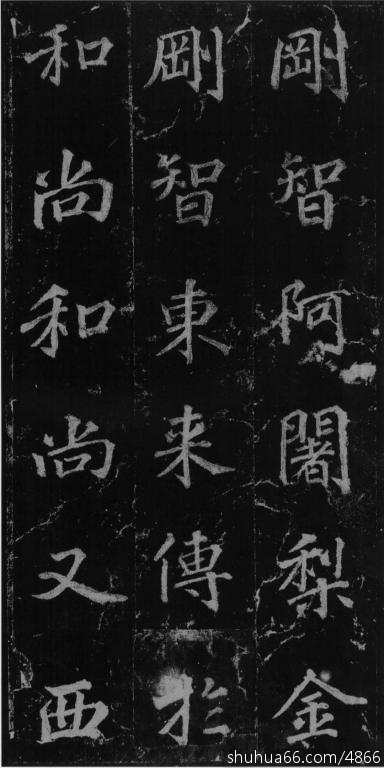 剛智阿闍梨金
剛智東来傳於
和尚和尚又西
shuhua66.com/4866